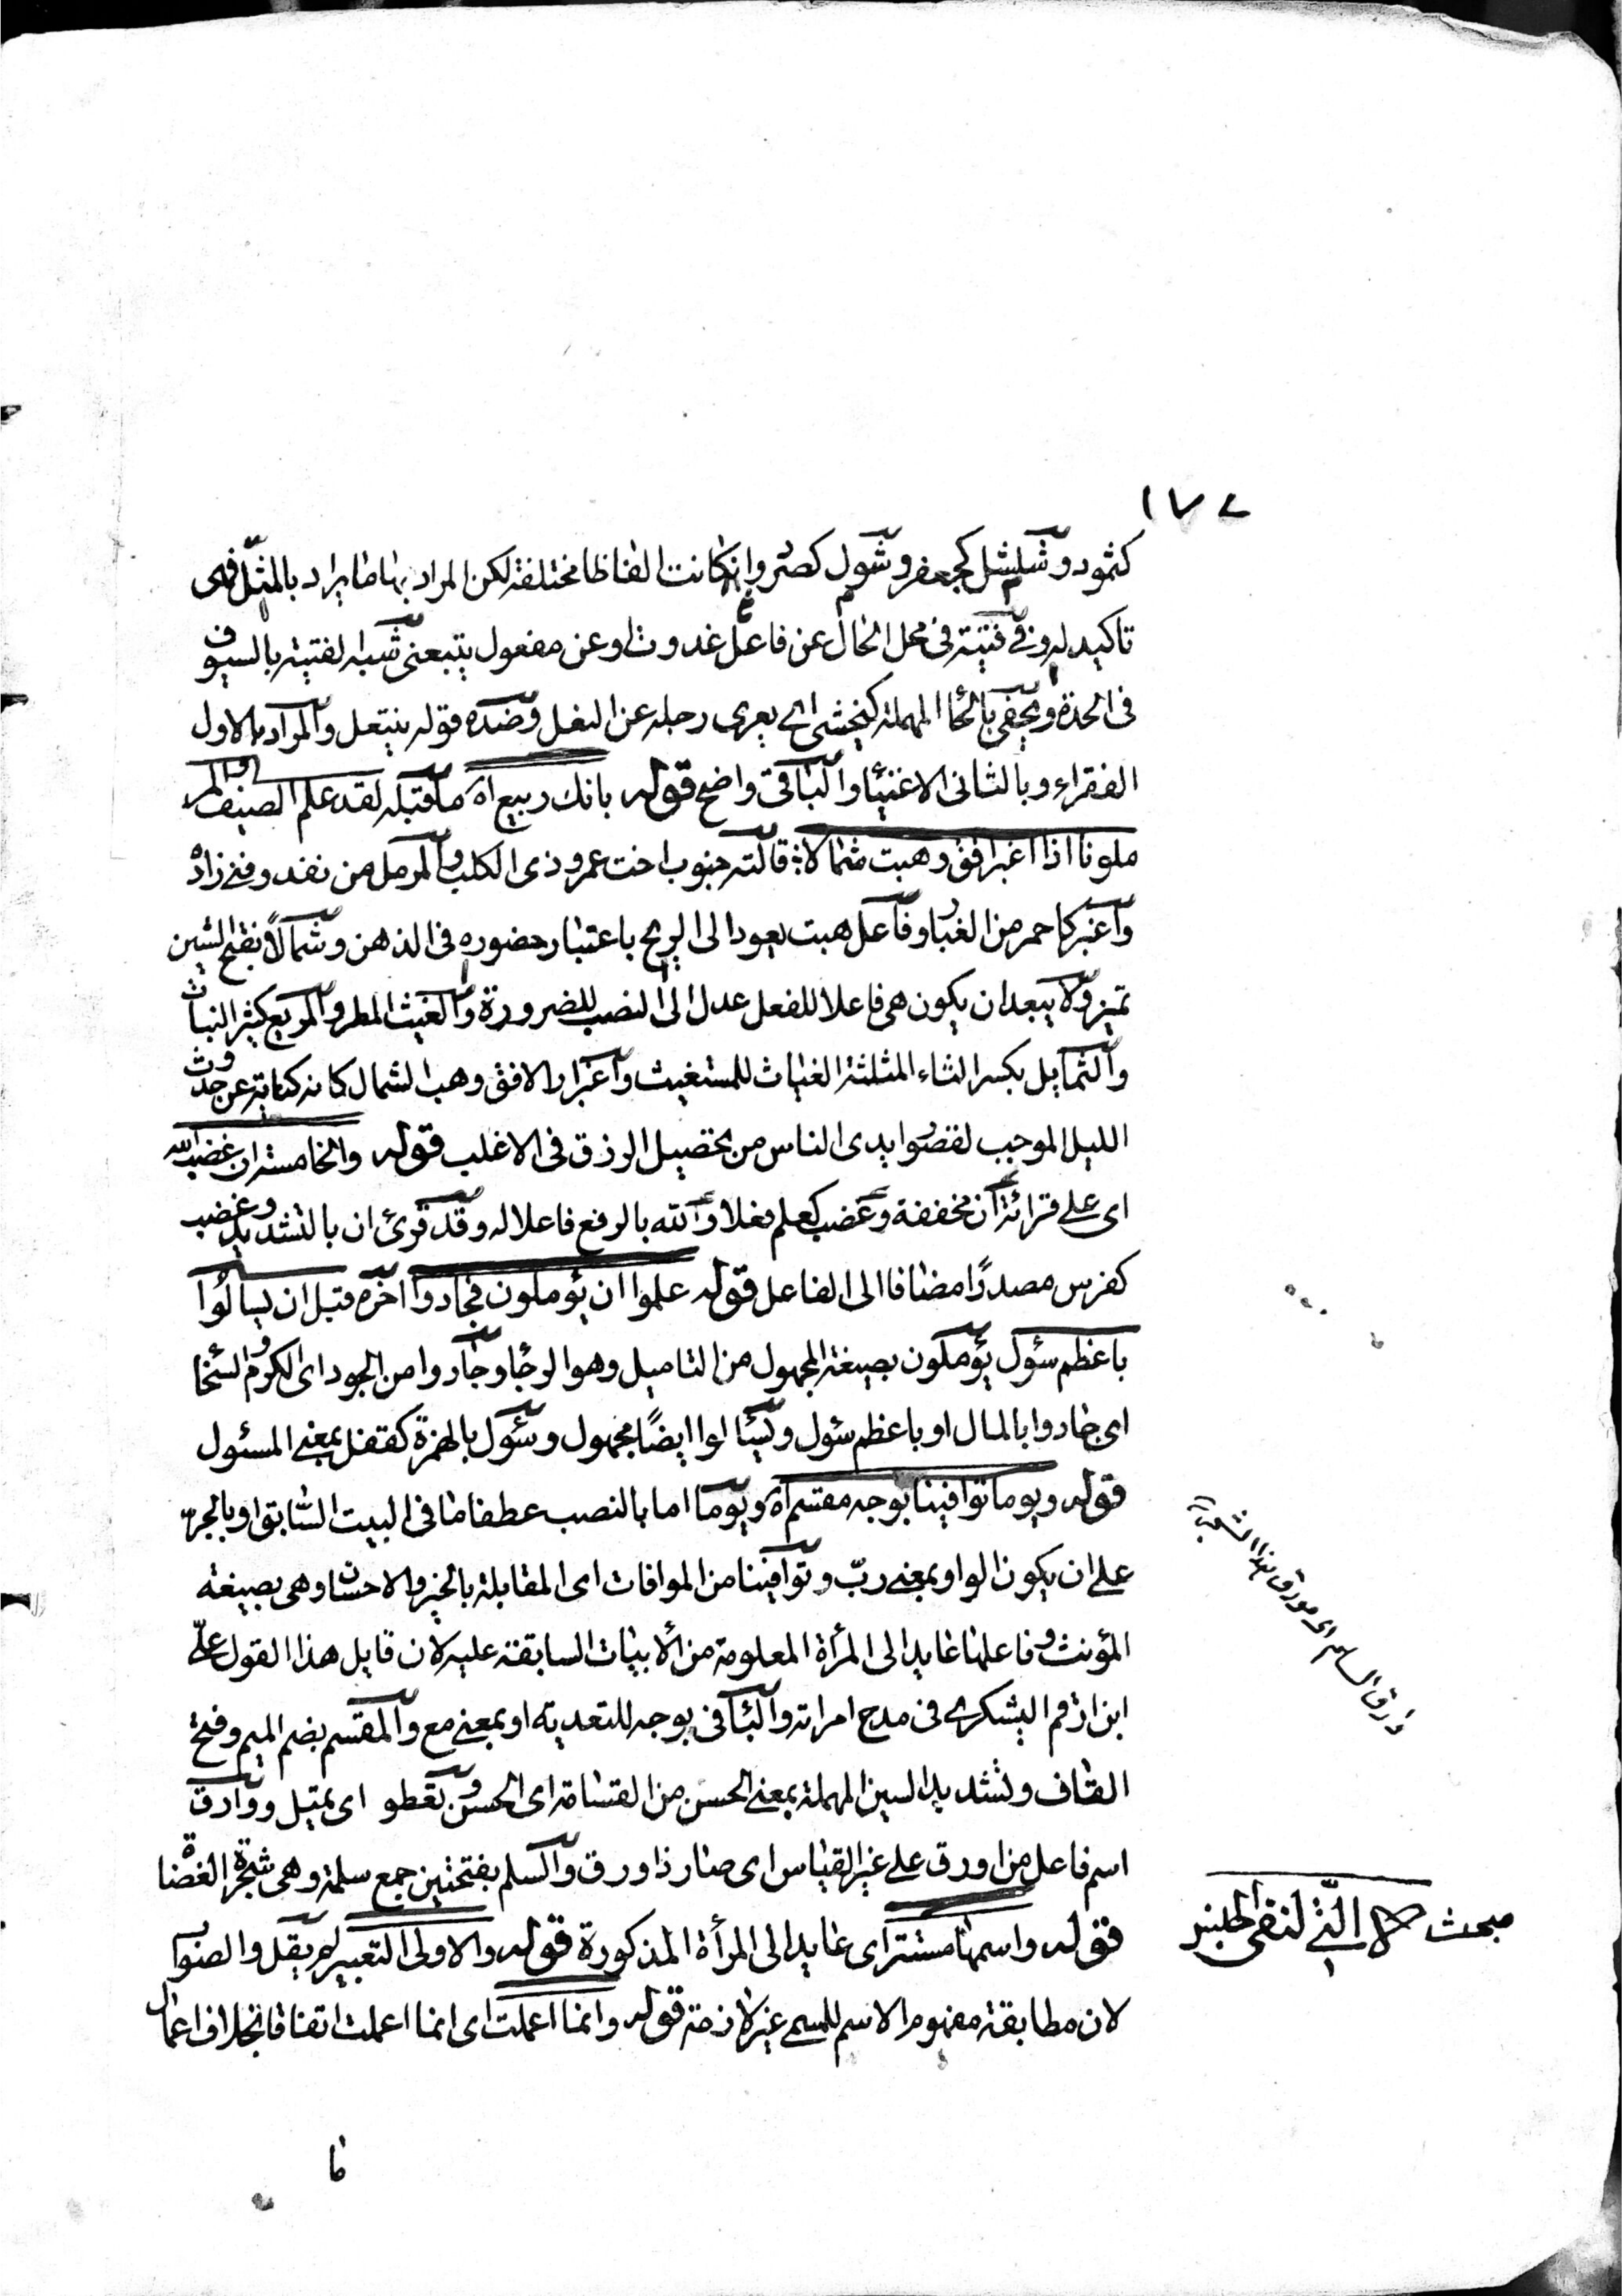 ١٧٤
كثمود وشلشل كجعفر وشول كصرد وانكانت الفاظا مختلفة لكن المراد بها ما يراد بالمثل فهى
تاكيد له وفى فتية فى محل الحال عن فاعل غدوت او عن مفعول يتبعنى شبه الفتية بالسيوف
فى الحدة ويحفى بالحاء المهملة كيخشى اى يعرى رجله عن النعل وضده قوله ينتعل والمراد بالاول
الفقراء وبالثانى الاغنياء والباقى واضح قوله بانك ربيع اه ما قبله لقد علم الضيف والمر
ملونا اذا اغبر افق وهبت شمالا قالته جنوب اخت عمرو ذى الكلب والمرمل من نفد وفنى زاده
واغبر كاحمر من الغبار وفاعل هبت يعود الى الريح باعتبار حضوره فى الذهن وشمالاً بفتح الشين
تميز ولا يبعد ان يكون هى فاعلا للفعل عدل الى النصب للضرورة والغيث المطر والمريع كثير النبات
والثمايل بكسر الثاء المثلثة الغياث للمستغيث واغبرار الافق وهب الشمال كانه كناية عن حدوث
الليل الموجب لقصر ايدى الناس من تحصيل الرزق فى الاغلب قوله والخامسة ان غضب الله
اى على قرائة ان مخففة وغضب كعلم فعلا والله بالرفع فاعلا له وقد قرئ ان بالتشديد وغضب
كفرس مصدرًا مضافا الى الفاعل قوله علموا ان يؤملون فجادوا آخره قبل ان يسالُوا
باعظم سئول يؤملون بصيغة المجهول من التاميل وهو الرجاء وجادوا من الجود اى الكرم والسخا
اى جادوا بالمال او باعظم سئول ويسئالوا ايضًا مجهول وسئول بالهمزة كقفل بمعنى المسئول
قوله ويوما توافينا بوجه مقسم اه ويوما اما بالنصب عطفا ما فى البيت السابق او بالجر
على ان يكون الواو بمعنى ربّ وتوافينا من الموافات اى المقابلة بالخير والاحسان وهى بصيغة
المؤنث وفاعلها عايد الى المرأة المعلومة من الابيات السابقة عليه لان قايل هذا القول على
ابن ارقم اليشكرى فى مدح امراته والباء فى بوجه للتعدية او بمعنى مع والمقسم بضم الميم وفتح
القاف وتشديد السين المهملة بمعنى الحسن من القسامة اى الحسن وتعطو اى تميل ووارق
اسم فاعل من اورق على غير القياس اى صار ذا ورق والسلم بفتحتين جمع سلمة وهى شجرة الغضا
قوله واسمها مستتر اى عايد الى المرأة المذكورة قوله والاولى التعبير لم يقل والصواب
لان مطابقة مفهوم الاسم للمسمى غير لازمة قوله وانما اعملت اى انما اعملت اتفاقا بخلاف اعمال
مبحث لا التى لنفى الجنس
ما